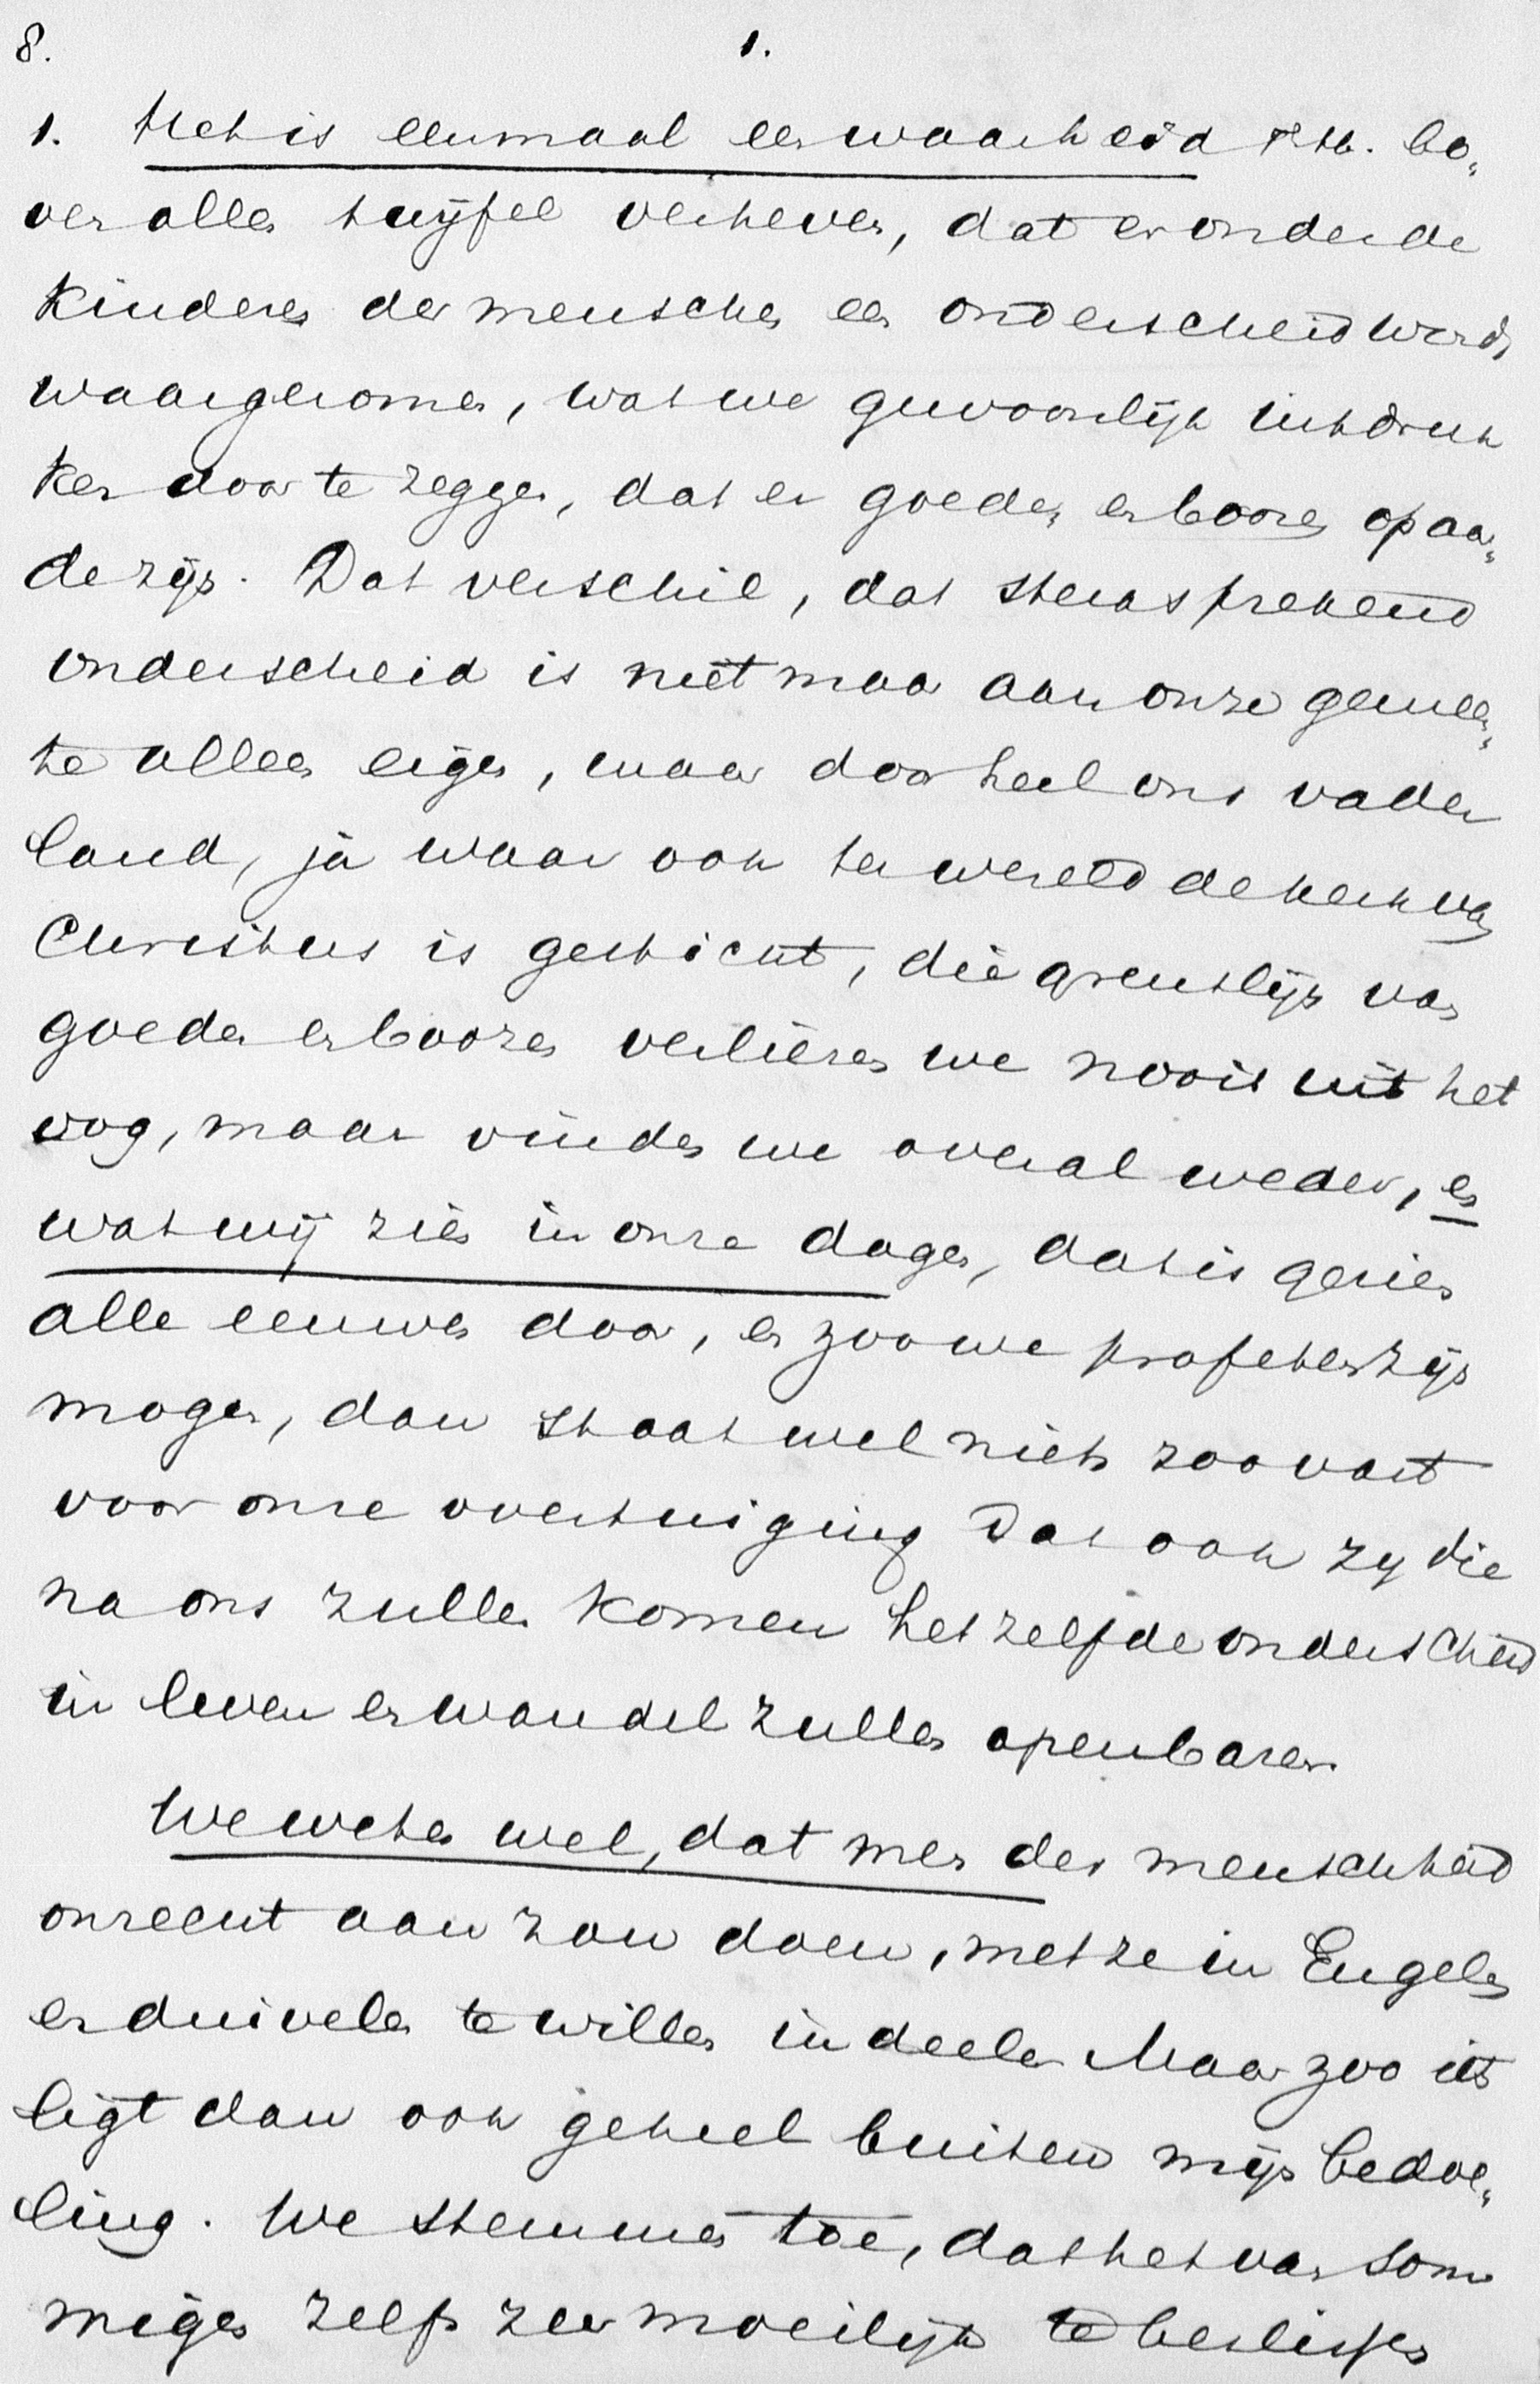 8. 1.
1. Het is eenmaal een waarheid M.H. bo„
ven allen twijfel verheven, dat er onder de
kinderen der menschen een onderscheid wordt
waargenomen, wat we gewoonlijk uitdruk
ken door te zeggen, dat er goeden en boozen op aar„
de zijn. Dat verschil, dat sterksprekend
onderscheid is niet maar aan onze gemeen„
te alleen eigen, maar door heel ons vader
land, ja waar ook ter wereld de kerk van
Christus is gesticht, die grenslijn van
goeden en boozen verliezen we nooit uit het
oog, maar vinden we overal weder, en
wat wij zien in onze dagen, dat is gezien
alle eeuwen door, en zoo we profeten zijn
mogen, dan staat wel niets zoo vast
voor onze overtuiging dat ook zij die
na ons zullen komen hetzelfde onderscheid
in leven en wandel zullen openbaren.
We weten wel, dat men der menschheid
onrecht aan zou doen, met ze in Engelen
en duivelen te willen indeelen Maar zoo iets
ligt dan ook geheel buiten mijn bedoe„
ling. We stemmen toe, dat het van som
migen zelfs zeer moeilijk te beslissen